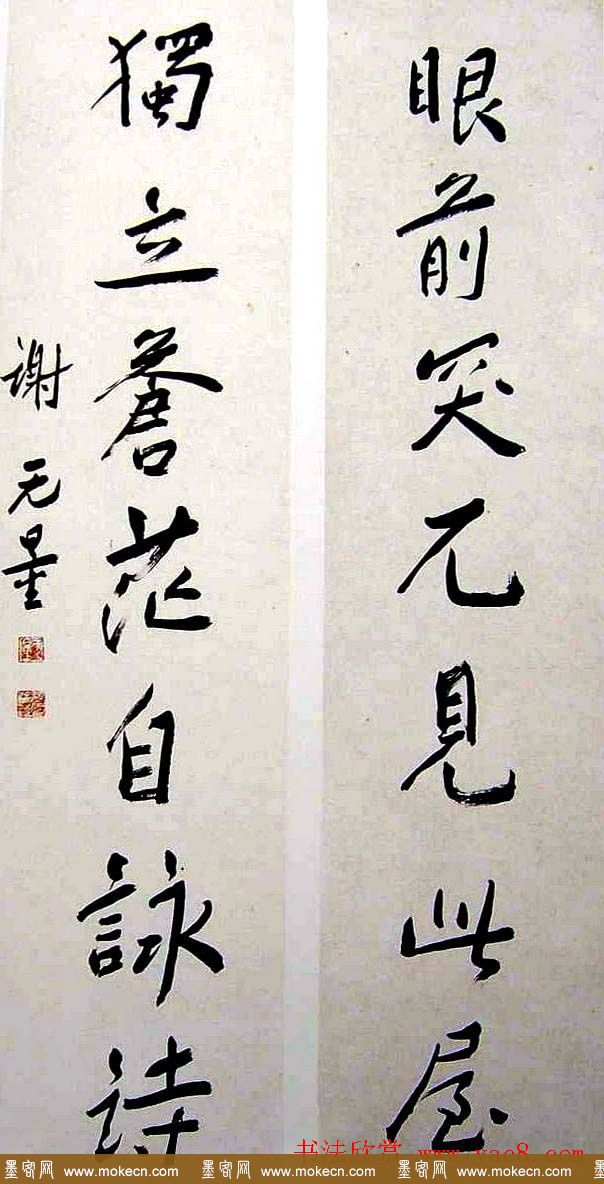 眼前突兀見此屋
獨立蒼茫自詠詩
謝无量
书法欣赏 www.yac8.com
墨客网 www.mokecn.com 墨客网 www.mokecn.com 墨客网 www.mokecn.com